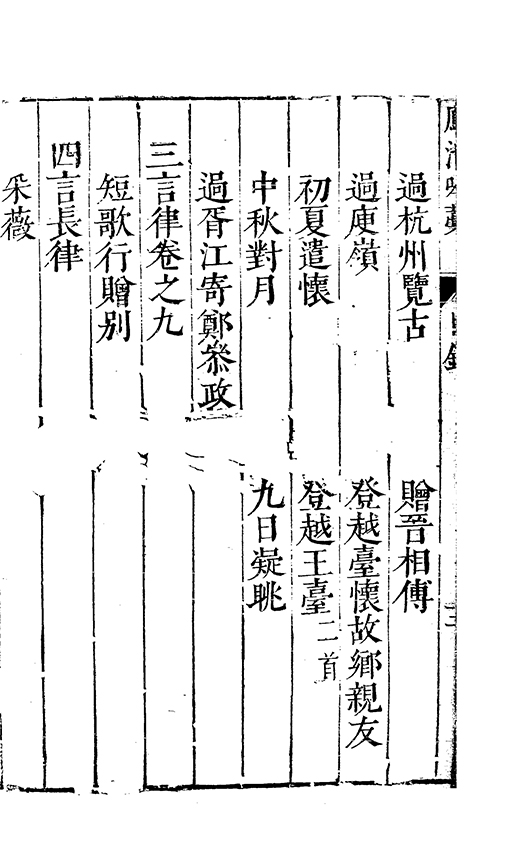 過杭州覽古　贈吾相傅
過庾嶺　登越臺懷故鄉親友
初夏遣懷　登越王臺二首
中秋對月　九日凝眺
過胥江寄鄭叅政
三言律卷之九
短歌行贈別
四言長律
采薇